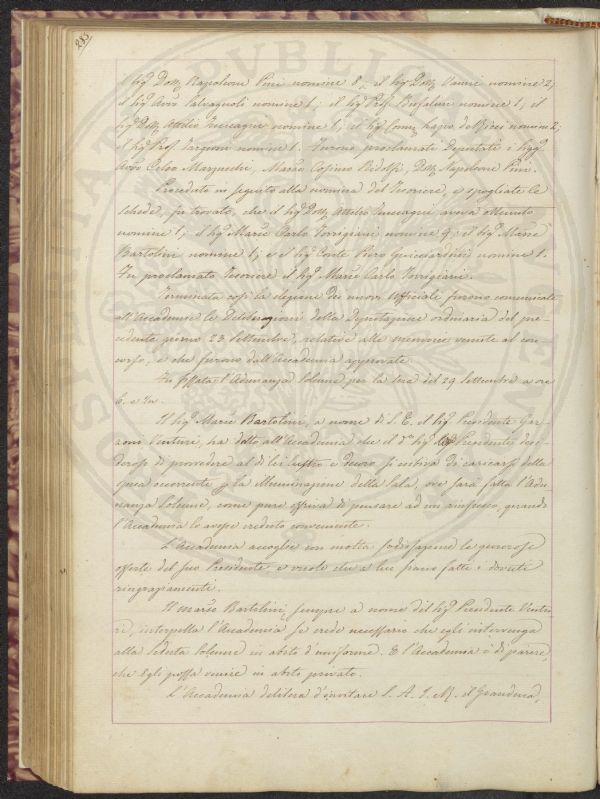 233
il Sig.r Dott. Napoleone Pini nomine 8, il Sig.r Dott. Vanni nomine 2;
il Sig.r Avv. Salvagnoli nomine 1; il Sig.r Prof. Bufalini nomine 1, il
Sig.r Dott. Attilio Zuccagni nomine 1; il Sig.r Com. de' Ricci nomine 2;
il Sig.r Prof. Targioni nomine 1. Furono proclamati Deputati i Sigg.
Avv. Celso Marzucchi, March. Cosimo Ridolfi, Dott. Napoleone Pini.
Proceduto in seguito alla nomina del Tesoriere, e spogliate le
schede, fu trovato, che il Sig.r Dott. Attilio Zuccagni aveva ottenuto
nomine 1; il Sig.r March. Carlo Torrigiani nomine 9; il Sig.r March.
Bartolini nomine 1; e il Sig.r Conte Piero Guicciardini nomine 1.
Fu proclamato Tesoriere il Sig.r March. Carlo Torrigiani.
Terminata così la elezione dei nuovi Officiali furono comunicate
all'Accademia le Deliberazioni della Deputazione ordinaria del pre-
cedente giorno 23 Settembre, relative alle memorie venute al con-
corso, e che furono dall'Accademia approvate.
Fu fissata l'Adunanza Solenne per la sera del 29 Settembre a ore
6. e 1/2.
Il Sig.r March. Bartolini, a nome di S. E. il Sig.r Presidente Gar-
zoni Venturi, ha detto all'Accademia che il d.o Sig. Presidente desi-
deroso di provvedere al di lei lustro e decoro si esibiva di caricarsi della
spesa occorrente p. la Illuminazione della Sala, ove sarà fatta l'Adu-
nanza Solenne, come pure offriva di pensare ad un rinfresco, quando
l'Accademia lo avesse creduto conveniente.
L'Accademia accoglie con molta sodisfazione le generose
offerte del suo Presidente e vuole che a lui siano fatti i dovuti
ringraziamenti.
Il March. Bartolini, sempre a nome del Sig.r Presidente Ventu-
ri, interpella l'Accademia se crede necessario che egli intervenga
alla Seduta Solenne in abito d'uniforme. E l'Accademia è di parere,
che Egli possa venire in abito privato.
L'Accademia delibera d'invitare S. A. I. R. il Granduca,